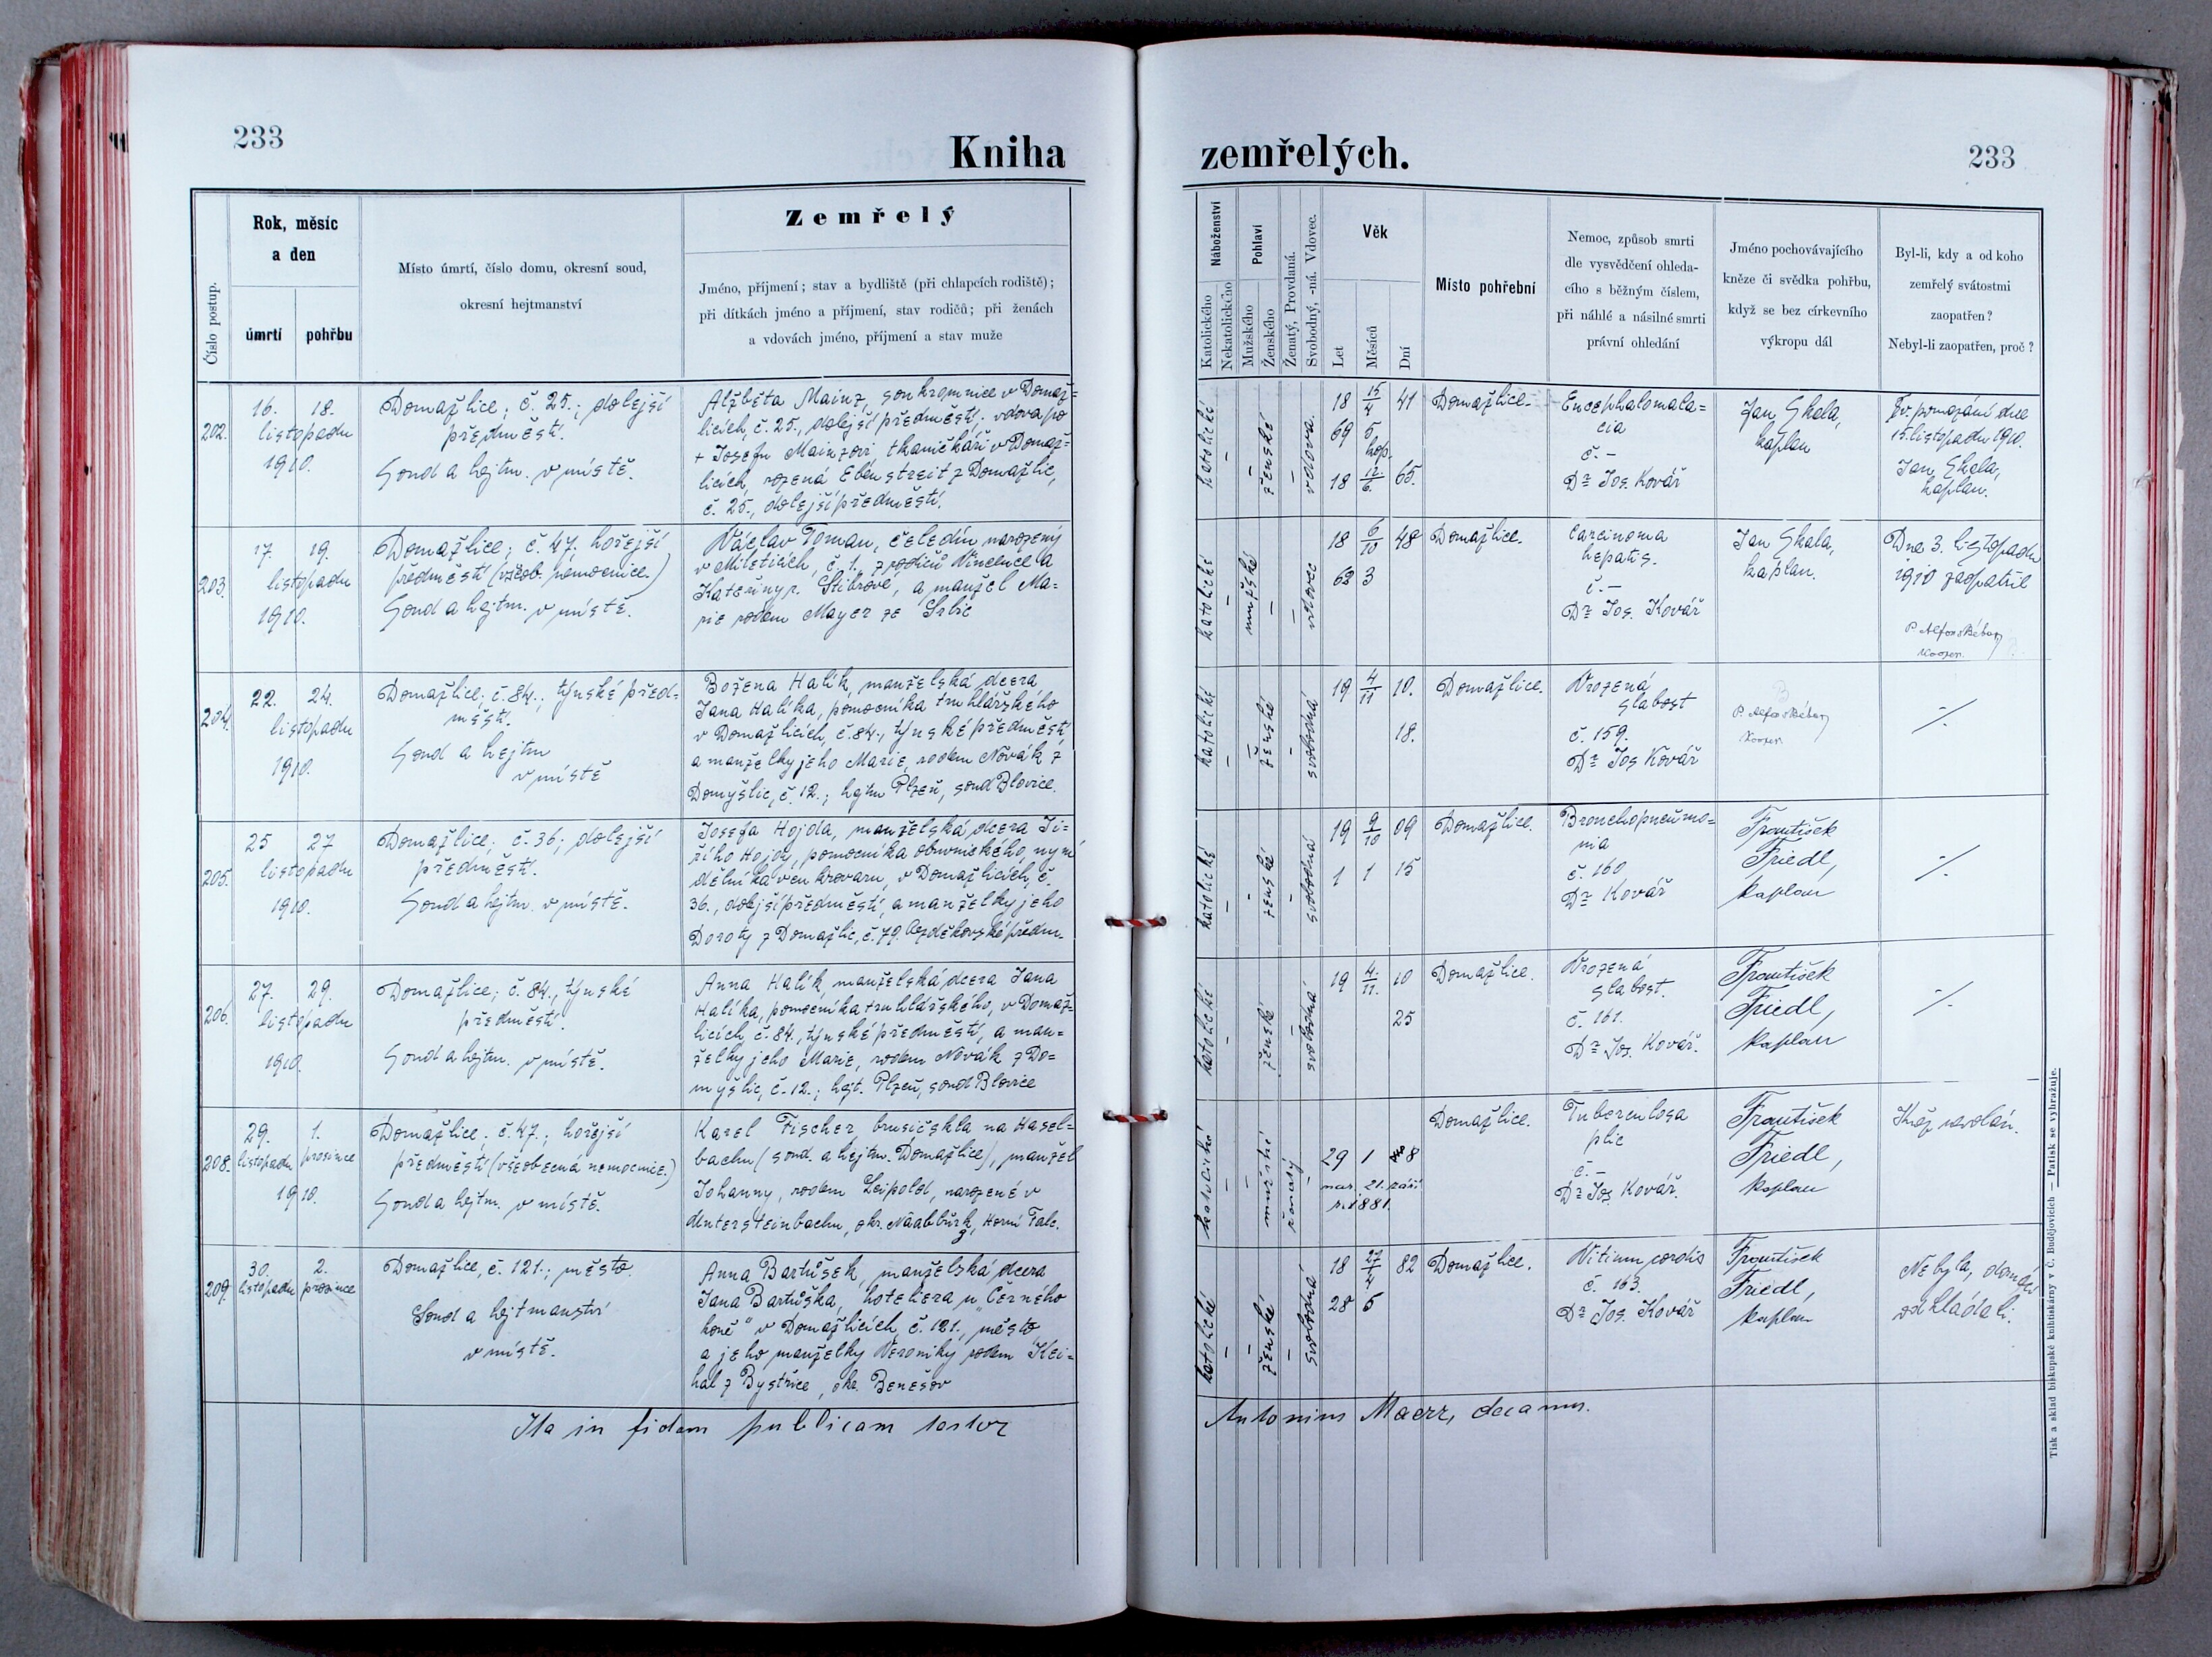 233
Kniha
zemřelých.
233
Číslo postup.
Rok, měsíc
a den
úmrtí
pohřbu
Místo úmrtí, číslo domu, okresní soud,
okresní hejtmanství
Zemřelý
Jméno, příjmení; stav a bydliště (při chlapcích rodiště);
při dítkách jméno a příjmení, stav rodičů; při ženách
a vdovách jméno, příjmení a stav muže
Náboženství
Katolického
Nekatolického
Pohlaví
Mužského
Ženského
Ženatý, Provdaná.
Svobodný, -ná. Vdovec.
Věk
Let
Měsíců
Dní
Místo pohřební
Nemoc, způsob smrti
dle vysvědčení ohleda-
cího s běžným číslem,
při náhlé a násilné smrti
právní ohledání
Jméno pochovávajícího
kněze či svědka pohřbu,
když se bez církevního
výkropu dál
Byl-li, kdy a od koho
zemřelý svátostmi
zaopatřen?
Nebyl-li zaopatřen, proč?
202.
16. 18.
listopadu
1910.
Domažlice; č. 25.; dolejší
předměstí.
Soud a hejtm. v místě.
Alžběta Mainz, soukromnice v Domaž=
licích, č. 25., dolejší předměstí; vdova po
+ Josefu Mainzovi, tkaničkáři v Domaž=
licích, rozená Ebenstreit z Domažlic,
č. 25., dolejší předměstí.
katolické
–
–
ženské
–
vdova
18 15/4 41
69 5
hod.
18 12./6. 65.
Domažlice.
Encephalomala=
cia
č. –
Dr Jos. Kovář
Jan Skala,
kaplan
Sv. pomazání dne
15. listopadu 1910.
Jan Skala,
kaplan.
203.
17. 19.
listopadu
1910.
Domažlice; č. 47; hořejší
předměstí (všeob. nemocnice.)
Soud a hejtm. v místě.
Václav Toman, čeledín narozený
v Miletičích, č. 1. z rodičů Vincence a
Kateřiny r. Stibrové, a manžel Ma-
rie rodem Mayer ze Srbic
katolické
–
mužské
–
–
vdovec
18 6/10 48
62 3
Domažlice.
Carcinoma
hepatis.
č. –
Dr Jos. Kovář
Jan Skala,
kaplan.
Dne 3. listopadu
1910 zaopatřil
204.
22. 24.
listopadu
1910.
Domažlice; č. 84.; týnské před=
městí.
Soud a hejtm
v místě
Božena Halík, manželská dcera
Jana Halíka, pomocníka truhlářského
v Domažlicích, č. 84., týnské předměstí,
a manželky jeho Marie, rodem Novák z
Domyšlic, č. 12.; hejtm Plzeň, soud Blovice.
katolické
–
–
ženské
–
svobodná
19 4/11 10.
18.
Domažlice.
Vrozená
slabost
č. 159.
Dr Jos Kovář
./.
205.
25 27
listopadu
1910.
Domažlice; č. 36; dolejší
předměstí.
Soud a hejtm. v místě.
Josefa Hojda, manželská dcera Ji-
řího Hojdy, pomocníka obuvnického, nyní
dělníka v cukrovaru, v Domažlicích, č.
36., dolejší předměstí, a manželky jeho
Doroty z Domažlic, č. 79. Bezděkovské předm.
katolické
–
–
ženské
–
svobodná
19 9/10 09
1 1 15
Domažlice.
Bronchopneumo=
nia
č. 160
Dr Kovář
František
Friedl,
kaplan
./.
206.
27. 29.
listopadu
1910.
Domažlice; č. 84., týnské
předměstí.
Soud a hejtm. v místě.
Anna Halík, manželská dcera Jana
Halíka, pomocníka truhlářského, v Domaž=
licích, č. 84., týnské předměstí, a man-
želky jeho Marie, rodem Novák z Do=
myšlic, č. 12.; hejt. Plzeň, soud Blovice
katolické
–
–
ženské
–
svobodná
19 4./11. 10
25
Domažlice.
Vrozená
slabost.
č. 161.
Dr Jos. Kovář.
František
Friedl,
kaplan
./.
208.
29. 1.
listopadu prosince
1910.
Domažlice; č. 47.; hořejší
předměstí (všeobecná nemocnice.)
Soud a hejtm. v místě.
Karel Fischer, brusič skla na Hasel=
bachu (soud. a hejtm. Domažlice), manžel
Johanny, rodem Leipold, narozené v
Untersteinbachu, okr. Naabburg, Horní Falc.
katolické
–
–
mužské
ženatý
–
29 1 8
nar. 21. září
r. 1881.
Domažlice.
Tuberculosa
plic
č. –
Dr Jos. Kovář.
František
Friedl,
kaplan
Kněz nevolán.
209.
30. 2.
listopadu prosince
Domažlice, č. 121.; město.
Soud a hejtmanství
v místě.
Anna Bartůšek, manželská dcera
Jana Bartůška, hoteliera u „Černého
koně" v Domažlicích, č. 121., město
a jeho manželky Veroniky rodem Kei=
hal z Bystřice, okr. Benešov
katolické
–
–
ženské
–
svobodná
18 27/4 82
28 5
Domažlice.
Vitium cordis
č. 163.
Dr Jos. Kovář
František
Friedl,
kaplan
Nebyla, domácí
odkládali.
Ita in fidem publicam testor
Antonius Maerz, decanus.
Tisk a sklad biskupské knihtiskárny v Č. Budějovicích — Patisk se vyhražuje.